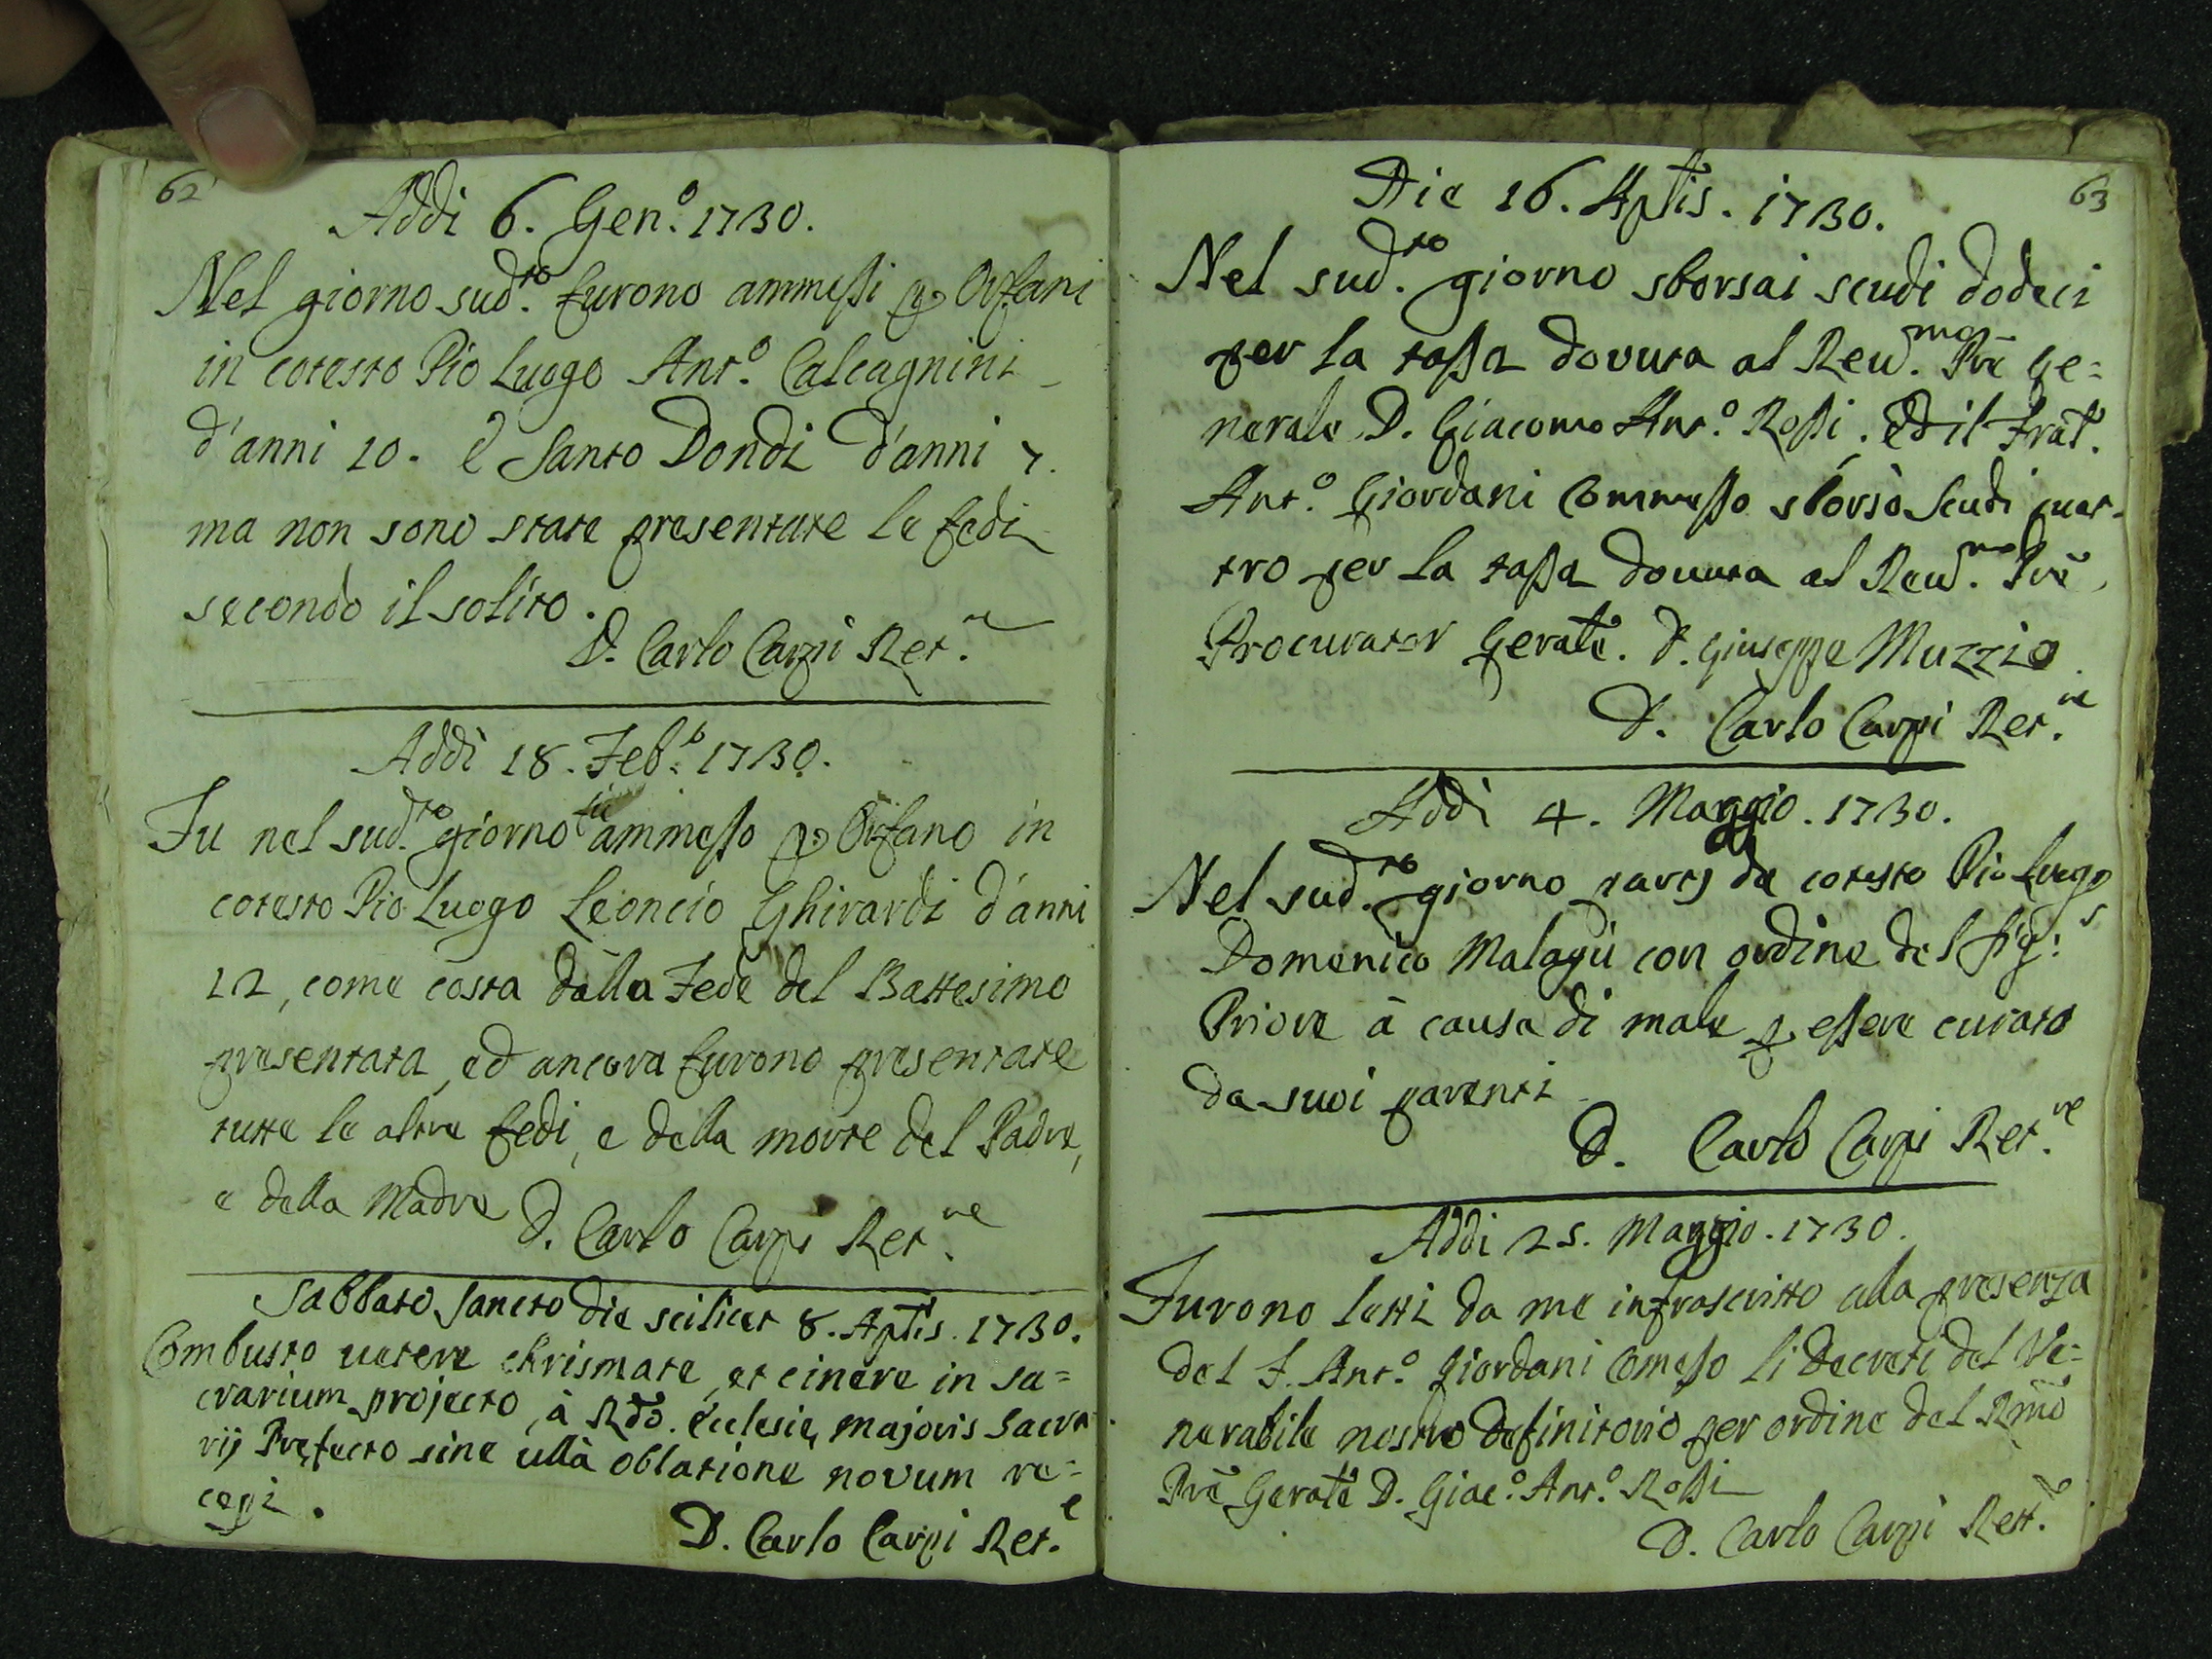 62
Addi 6. Gen.o 1730.
Nel giorno sud.to furono ammessi p Orfani
in cotesto Pio Luogo Ant.o Calcagnini
d'anni 10. e Santo Dondi d'anni 7.
ma non sono state presentate le fedi
secondo il solito.
D. Carlo Carpi Ret.re
Addi 18. Feb.o 1730.
Fu nel sud.to giorno fù ammesso p Orfano in
cotesto Pio Luogo Leoncio Ghirardi d'anni
12, come costa dalla Fede del Battesimo
presentata, ed ancora furono presentate
tutte le altre fedi, e della morte del Padre,
e della Madre D. Carlo Carpi Ret.re
Sabbato Sancto die scilicet 8. Aplis. 1730.
Combusto vetere chrismate, et cinere in sa=
crarium projecto, à Rdo. Ecclesie majoris Sacra
rij Prefecto sine ullà oblatione novum re=
cepi.
D. Carlo Carpi Ret.e
63
Die 16. Aplis. 1730.
Nel sud.to giorno sborsai scudi dodeci
per la tassa dovuta al Reu.mo Prē Ge=
nerale D. Giacomo Ant.o Rossi. Ed il Frat.
Ant.o Giordani Commesso sborsò Scudi quat-
tro per la tassa douuta al Reu.mo Prē
Procurator Gerale. D. Giuseppe Muzzio
D. Carlo Carpi Ret.re
Addi 4. Maggio. 1730.
Nel sud.to giorno partj da cotesto Pio Luogo
Domenico Malagù con ordine del Sig:r
Priore à causa di male p essere curato
da suoi parenti
D. Carlo Carpi Ret.re
Addi 25. Maggio. 1730.
Furono letti da me infrascritto alla presenza
del F. Ant.o Giordani Comesso li Decreti del Ve=
nerabile nostro Definitorio per ordine del Rmo
Prē Gerale D. Giac.o Ant.o Rossi
D. Carlo Carpi Rett.e